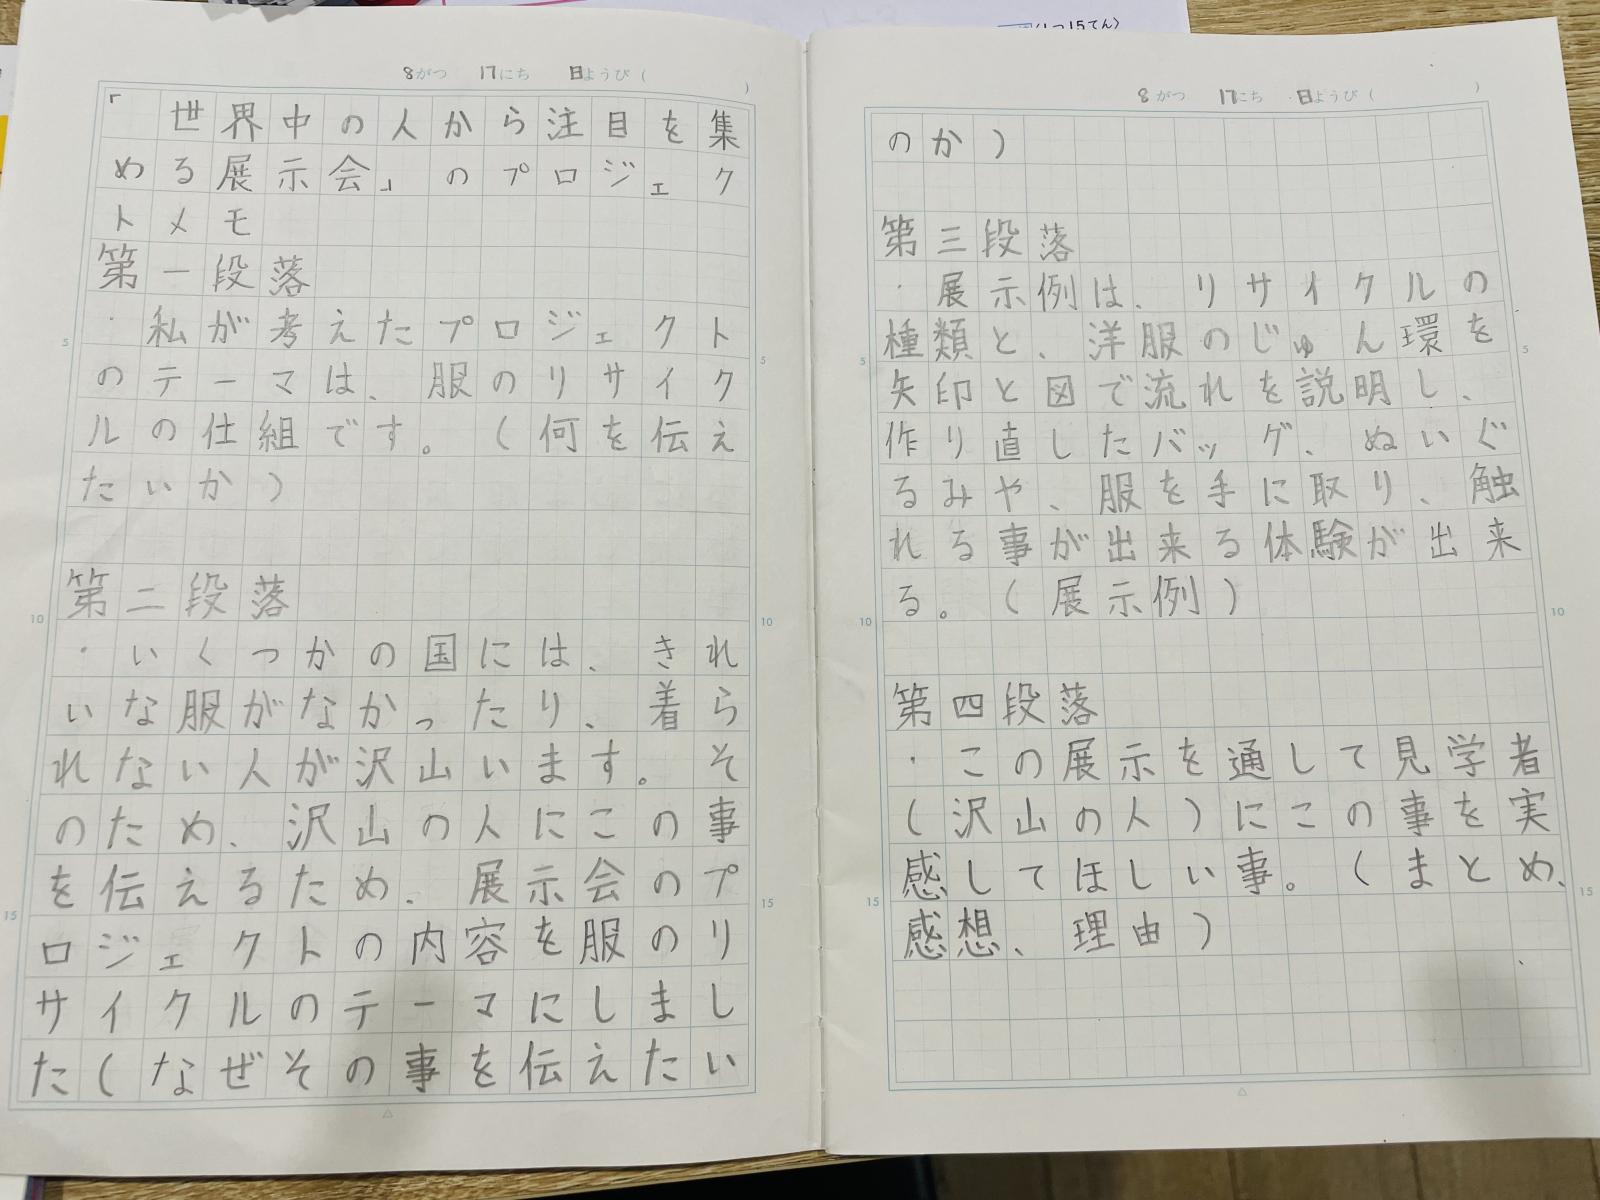 (1つ15てん)
8がつ 17にち 日ようび( )
「 世界中の人から注目を集
める展示会」のプロジェク
トメモ
第一段落
・私が考えたプロジェクト
のテーマは、服のリサイク
ルの仕組です。(何を伝え
たいか)
5
5
第二段落
・いくつかの国には、きれ
いな服がなかったり、着ら
れない人が沢山います。そ
のため、沢山の人にこの事
を伝えるため、展示会のプ
ロジェクトの内容を服のリ
サイクルのテーマにしまし
た(なぜその事を伝えたい
10
10
15
15
8がつ 17にち 日ようび( )
のか)
第三段落
・展示例は、リサイクルの
種類と、洋服のじゅん環を
矢印と図で流れを説明し、
作り直したバッグ、ぬいぐ
るみや、服を手に取り、触
れる事が出来る体験が出来
る。(展示例)
5
5
第四段落
・この展示を通して見学者
(沢山の人)にこの事を実
感してほしい事。(まとめ、
感想、理由)
10
10
15
15